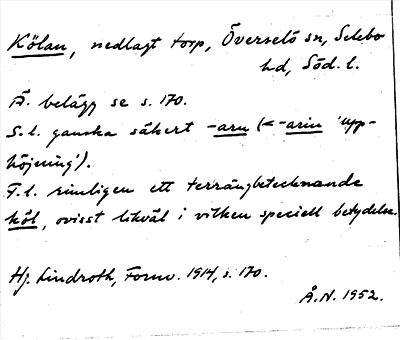 Kölan, nedlagt torp, Överselö sn, Selebo
hd, Söd. l.
Ä. belägg se s. 170.
S. l. ganska säkert -arn (<-arin 'upp-
höjning').
F. l. rimligen ett terrängbetecknande
köl, ovisst likväl i vilken speciell betydelse.
Hj. Lindroth, Fornv. 1914, s. 170.
Å.N. 1952.